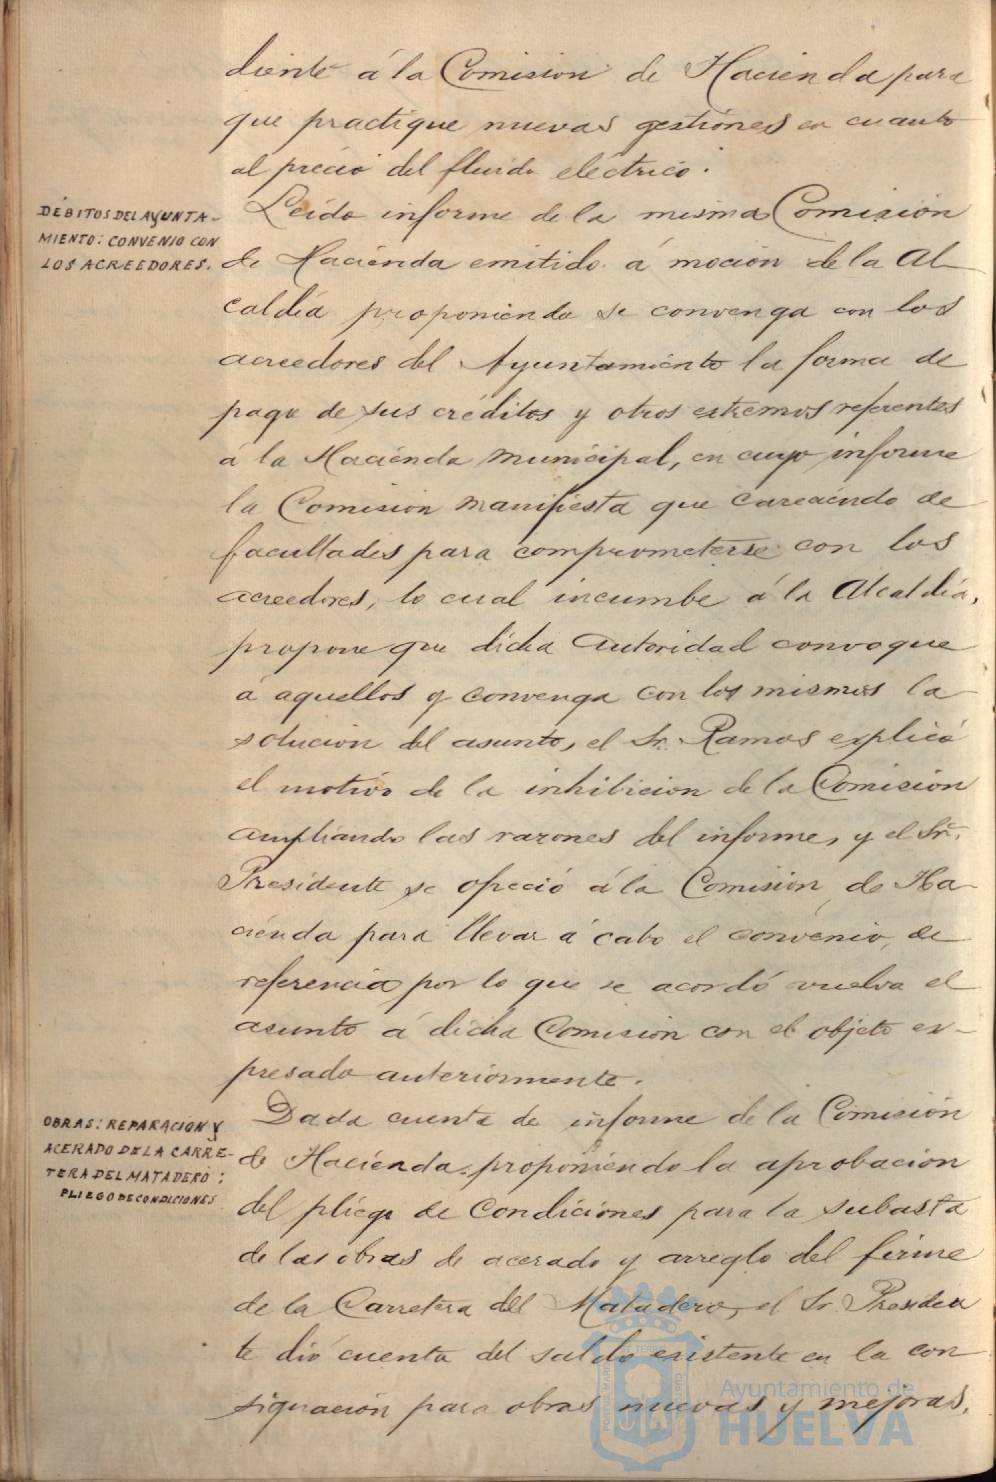 diente á la Comision de Hacienda para
que practique nuevas gestiones en cuanto
al precio del fluido eléctrico.
DÉBITOS DEL AYUNTA-
MIENTO: CONVENIO CON
LOS ACREEDORES.
Leido informe de la misma Comisión
de Hacienda emitido á moción de la Al
caldía proponiendo se convenga con los
acreedores del Ayuntamiento la forma de
pago de sus créditos y otros extremos referentes
á la Hacienda municipal, en cuyo informe
la Comision manifiesta que careciendo de
facultades para comprometerse con los
acreedores, lo cual incumbe á la Alcaldía,
propone que dicha autoridad convoque
á aquellos y convenga con los mismos la
solución del asunto, el Sr. Ramos explicó
el motivo de la inhibicion de la Comision
ampliando las razones del informe, y el Sr.
Presidente se ofreció á la Comisión de Ha-
cienda para llevar á cabo el convenio de
referencia por lo que se acordó vuelva el
asunto á dicha Comision con el objeto ex-
presado anteriormente.
OBRAS: REPARACION Y
ACERADO DE LA CARRE-
TERA DEL MATADERO:
PLIEGO DE CONDICIONES
Dada cuenta de informe de la Comisión
de Hacienda proponiendo la aprobacion
del pliego de condiciones para la subasta
de las obras de acerado y arreglo del firme
de la Carretera del Matadero, el Sr. Presiden
te dió cuenta del saldo existente en la con
signación para obras nuevas y mejoras.
Ayuntamiento de
HUELVA